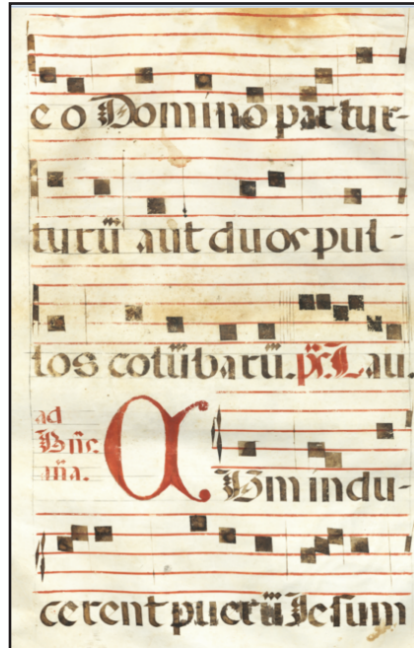 e o Domino par tur-
turū aut duos pul-
los colūbarū. ps. Lau.
ad
Bñe
ña.
CUm indu-
cerent puerū Jesum